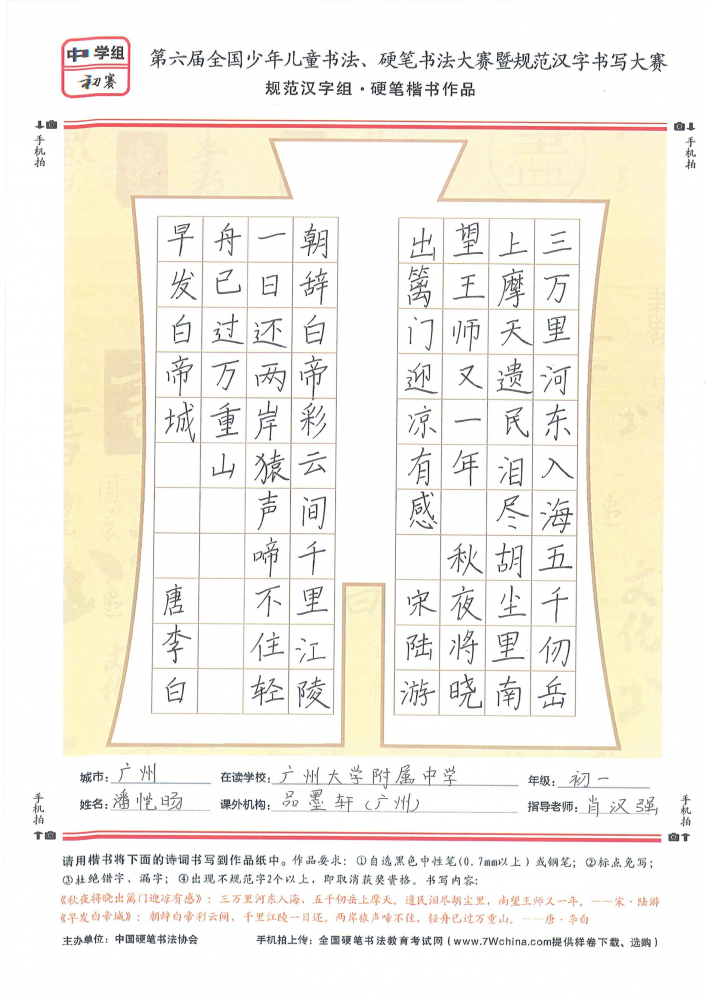 中学组
初赛
第六届全国少年儿童书法、硬笔书法大赛暨规范汉字书写大赛
规范汉字组·硬笔楷书作品
手机拍
手机拍
三万里河东入海五千仞岳
上摩天遗民泪尽胡尘里南
望王师又一年 秋夜将晓
出篱门迎凉有感 宋陆游
朝辞白帝彩云间千里江陵
一日还两岸猿声啼不住轻
舟已过万重山
早发白帝城 唐李白
城市：广州 在读学校：广州大学附属中学 年级：初一
姓名：潘恺旸 课外机构：品墨轩（广州） 指导老师：肖汉强
手机拍
手机拍
请用楷书将下面的诗词书写到作品纸中。作品要求：①自选黑色中性笔(0.7mm以上）或钢笔；②标点免写；
③杜绝错字、漏字；④出现不规范字2个以上，即取消获奖资格。书写内容：
《秋夜将晓出篱门迎凉有感》：三万里河东入海，五千仞岳上摩天。遗民泪尽胡尘里，南望王师又一年。——宋·陆游
《早发白帝城》：朝辞白帝彩云间，千里江陵一日还。两岸猿声啼不住，轻舟已过万重山。——唐·李白
主办单位：中国硬笔书法协会 手机拍上传：全国硬笔书法教育考试网（www.7Wchina.com提供样卷下载、选购）